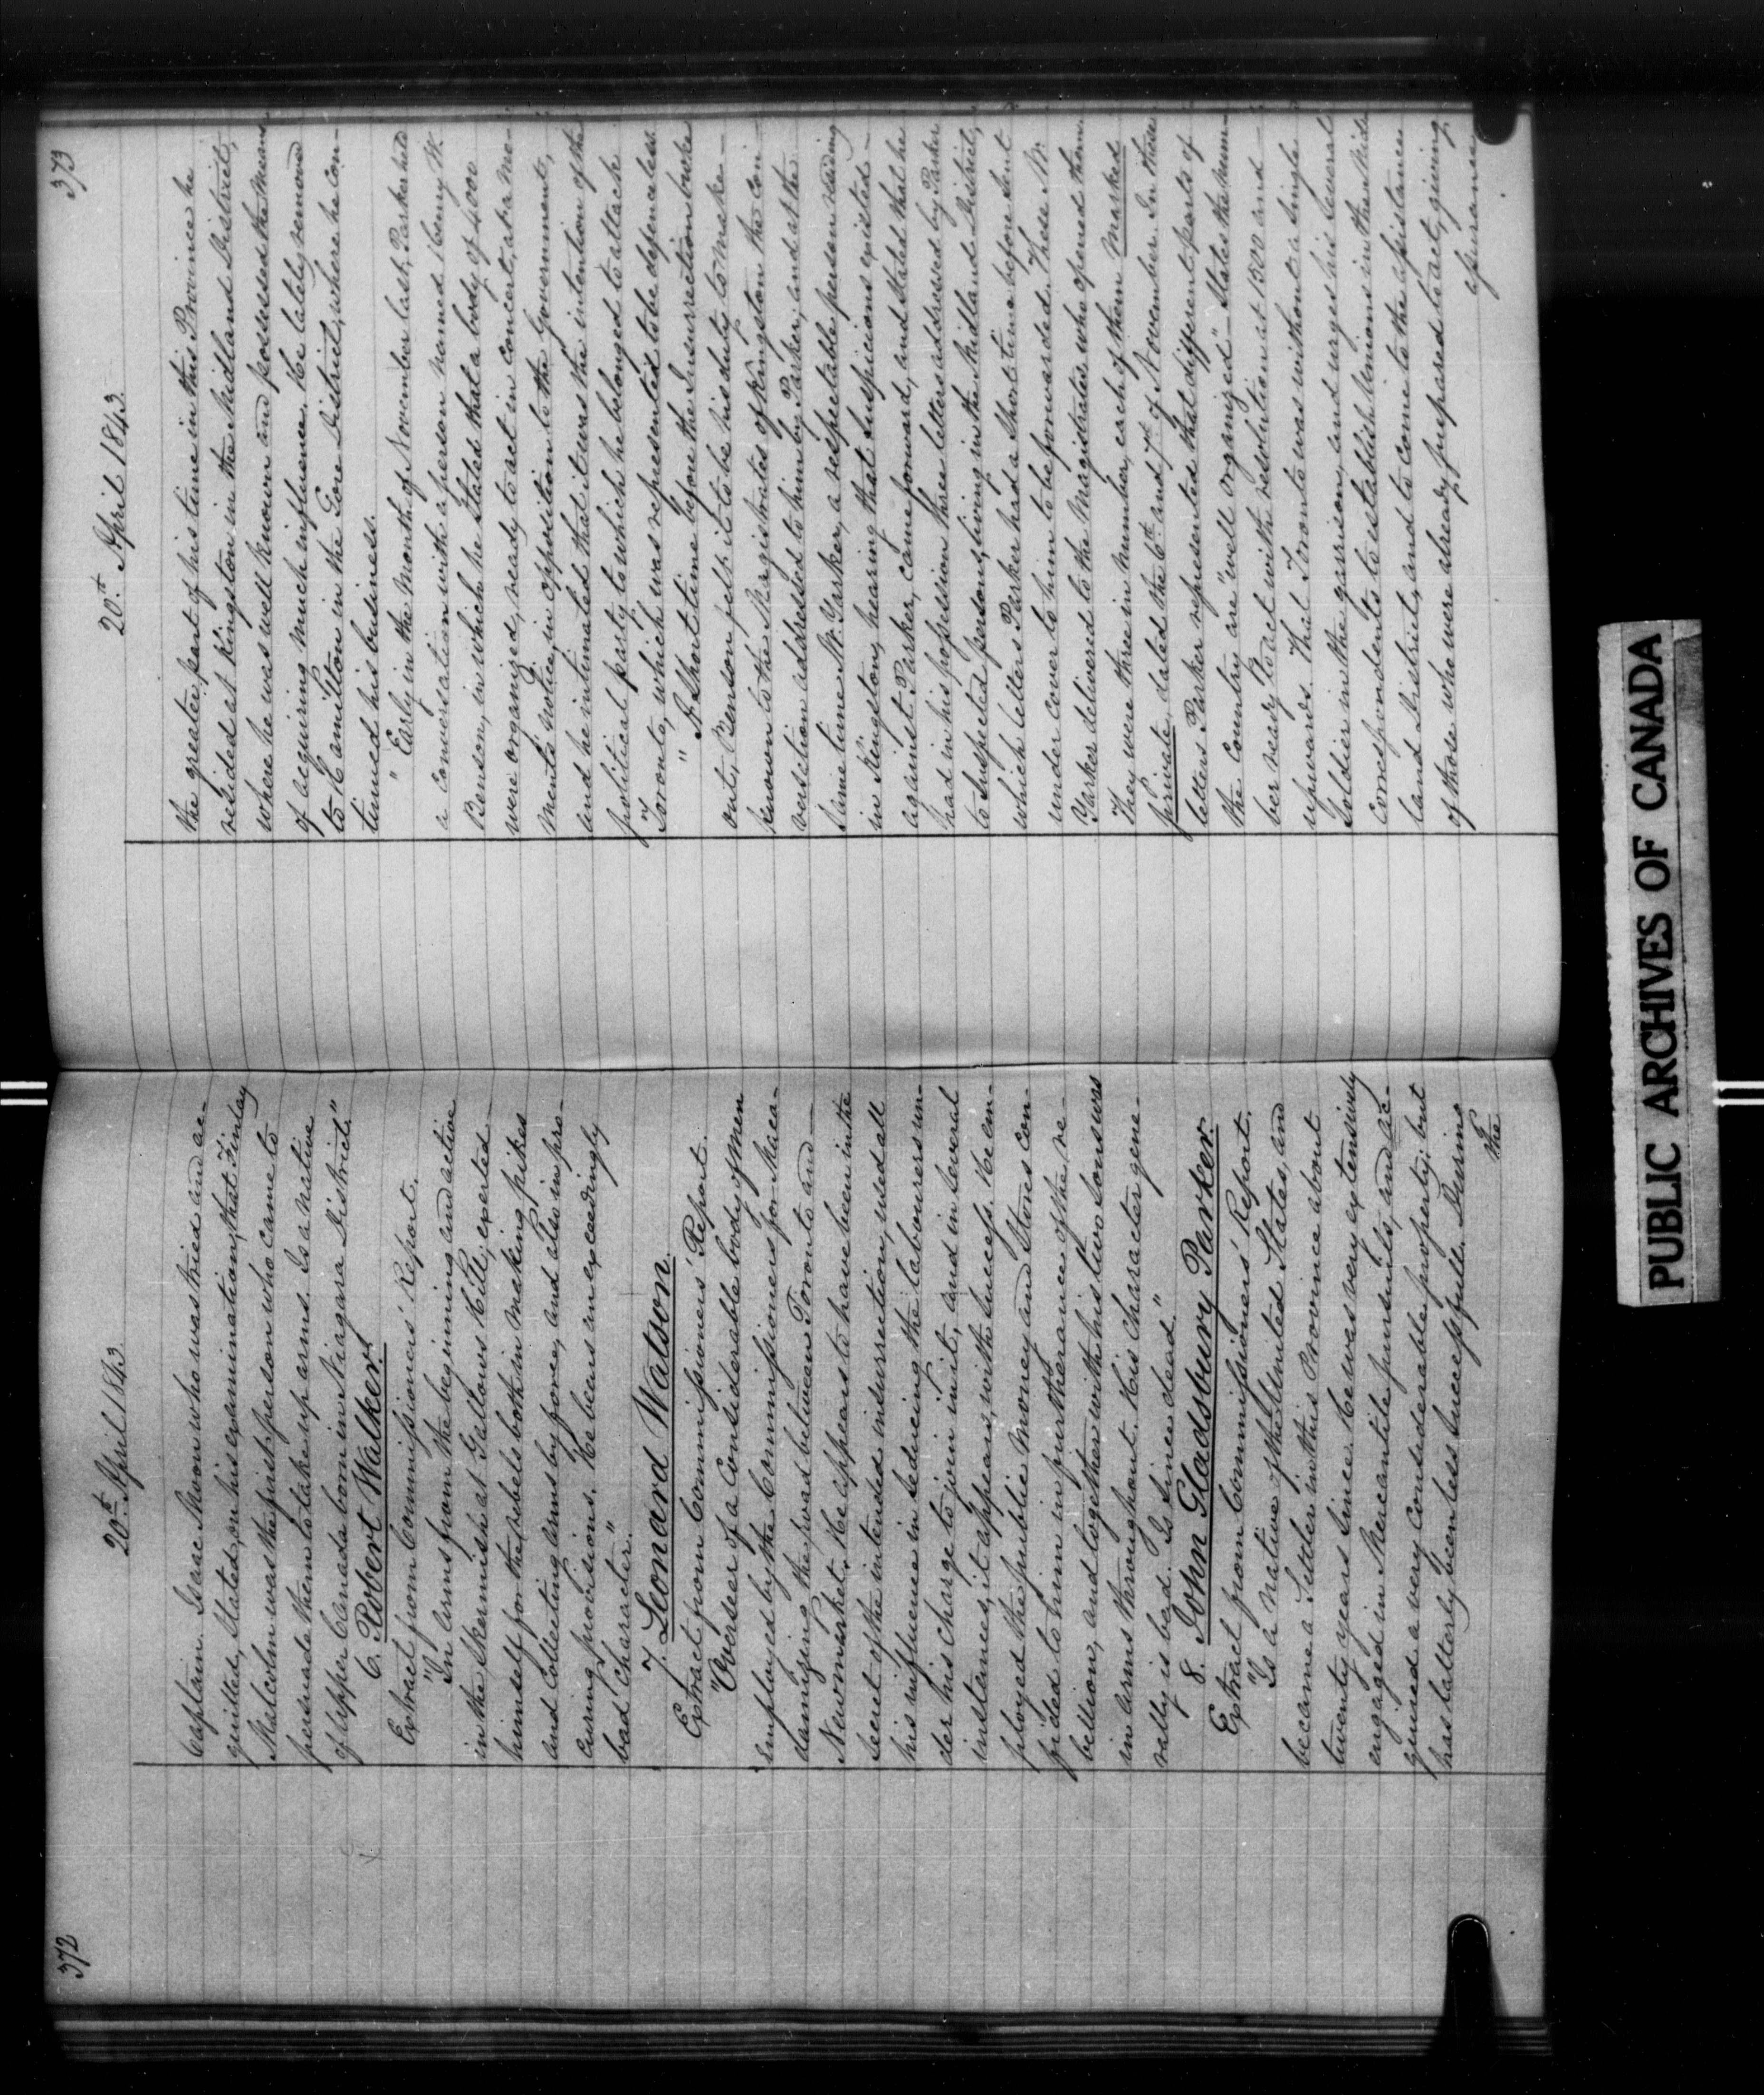 372
20th April 1843
Captain Isaac Snow who was tried and ac-
quitted, stated, on his examination, that Finlay
Malcolm was the first person who came to
persuade them to take up arms. Is a native
of Upper Canada born in Niagara District."
6. Robert Walker.
Extract from Commissioners' Report.
"In arms from the beginning and active
in the Skirmish at Gallows Hill; exerted
himself for the rebels both in making pikes
and collecting arms by force, and also in pro-
curing provisions. He bears an exceedingly
bad Character."
7. Leonard Watson.
Extract from Commissioners' Report.
"Overseer of a Considerable body of men
employed by the Commissioners for Maca-
damizing the road between Toronto and
Newmarket. He appears to have been in the
secret of the intended insurrection, used all
his influence in seducing the labourers un-
der his charge to join in it, and in several
instances, it appears, with success. He em-
ployed the public money and stores con-
fided to him in furtherance of the re-
bellion, and together with his two sons was
in arms throughout. His Character gene-
rally is bad. Is since dead."
8. John Gladsbury Parker.
Extract from Commissioners' Report.
"Is a native of the United States, and
became a Settler in this Province about
twenty years since. He was very extensively
engaged in Mercantile pursuits, and ac-
quired a very considerable property; but
has latterly been less successful. During
the
373
20th April 1843
the greater part of his time in this Province he
resided at Kingston in the Midland District,
where he was well known and possessed the means
of acquiring much influence. He lately removed
to Hamilton in the Gore District, where he con-
tinued his business.
"Early in the month of November last, Parker held
a conversation with a person named Henry W.
Benson, in which he stated that a body of 4000
were organized, ready to act in concert, at a mo-
ment's notice, in opposition to the Government,
and he intimated that it was the intention of the
political party to which he belonged to attack
Toronto, which was represented to be defenceless.
"A Short time before the Insurrection broke
out, Benson felt it to be his duty to make
known to the Magistrates of Kingston the con-
versation addressed to him by Parker; and at the
same time Mr. Yarker, a respectable person residing
in Kingston, hearing that suspicions existed
against Parker, came forward, and stated that he
had in his possession three letters addressed by Parker
to suspected persons, living in the Midland District,
which letters Parker had a short time before sent
under cover to him to be forwarded. These Mr.
Yarker delivered to the Magistrates who opened them.
They were three in number, each of them Marked
private, dated the 6th and 7th of November. In these
letters Parker represented that different parts of
the Country are "well organized" – states the num-
ber ready to act with resolution at 1500 and
upwards. That Toronto was without a single
Soldier in the garrison, and urges his several
correspondents to establish Unions in the Mid-
land District, and to come to the assistance
of those who were already prepared to act, giving
assurance
PUBLIC ARCHIVES OF CANADA